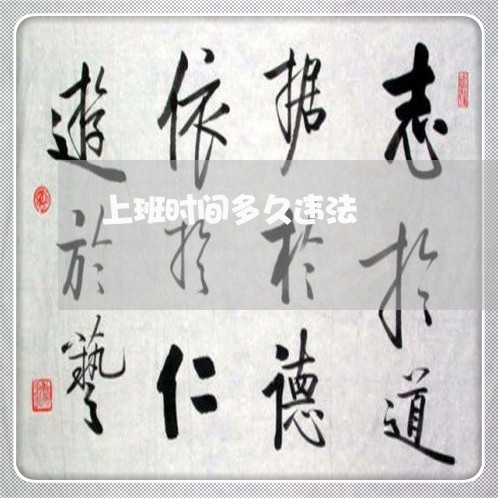 上班时间多久违法
志扵道
据於德
依扵仁
遊於藝